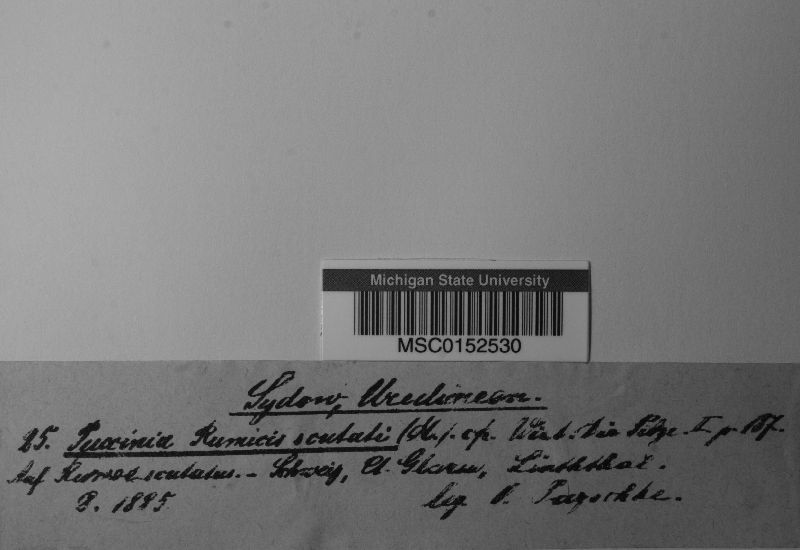 Michigan State University
MSC0152530
Sydow, Uredineen.
25. Puccinia Rumicis scutati cfr. Wint. Die Pilze I p. 187.
Auf Rumex scutatus. - Schweiz, Ct. Glarus, Linththal.
1885 leg. Pazschke.